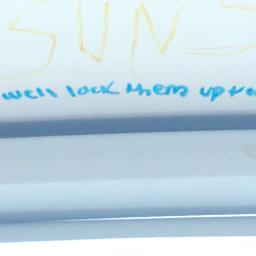 SUNS
well lock them up to